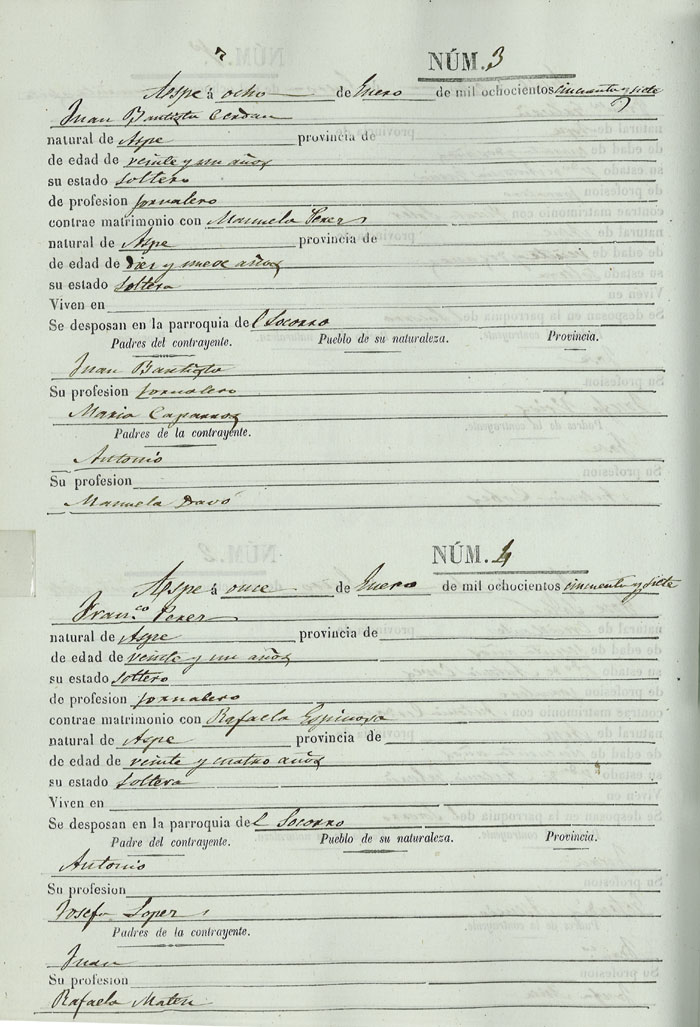 NÚM. 3
Aspe á ocho de Enero de mil ochocientos cincuenta y siete
Juan Bautista Cerdan
natural de Aspe provincia de
de edad de veinte y un años
su estado Soltero
de profesion jornalero
contrae matrimonio con Manuela Perez
natural de Aspe provincia de
de edad de diez y nueve años
su estado Soltera
Viven en
Se desposan en la parroquia del Socorro
Padres del contrayente. Pueblo de su naturaleza. Provincia.
Juan Bautista
Su profesion jornalero
Maria Caparros
Padres de la contrayente.
Antonio
Su profesion
Manuela Davó
NÚM. 4
Aspe á once de Enero de mil ochocientos cincuenta y siete
Fran.co Perez
natural de Aspe provincia de
de edad de veinte y un años
su estado Soltero
de profesion jornalero
contrae matrimonio con Rafaela Espinosa
natural de Aspe provincia de
de edad de veinte y cuatro años
su estado Soltera
Viven en
Se desposan en la parroquia del Socorro
Padre del contrayente. Pueblo de su naturaleza. Provincia.
Antonio
Su profesion
Josefa Lopez
Padres de la contrayente.
Juan
Su profesion
Rafaela Mateu